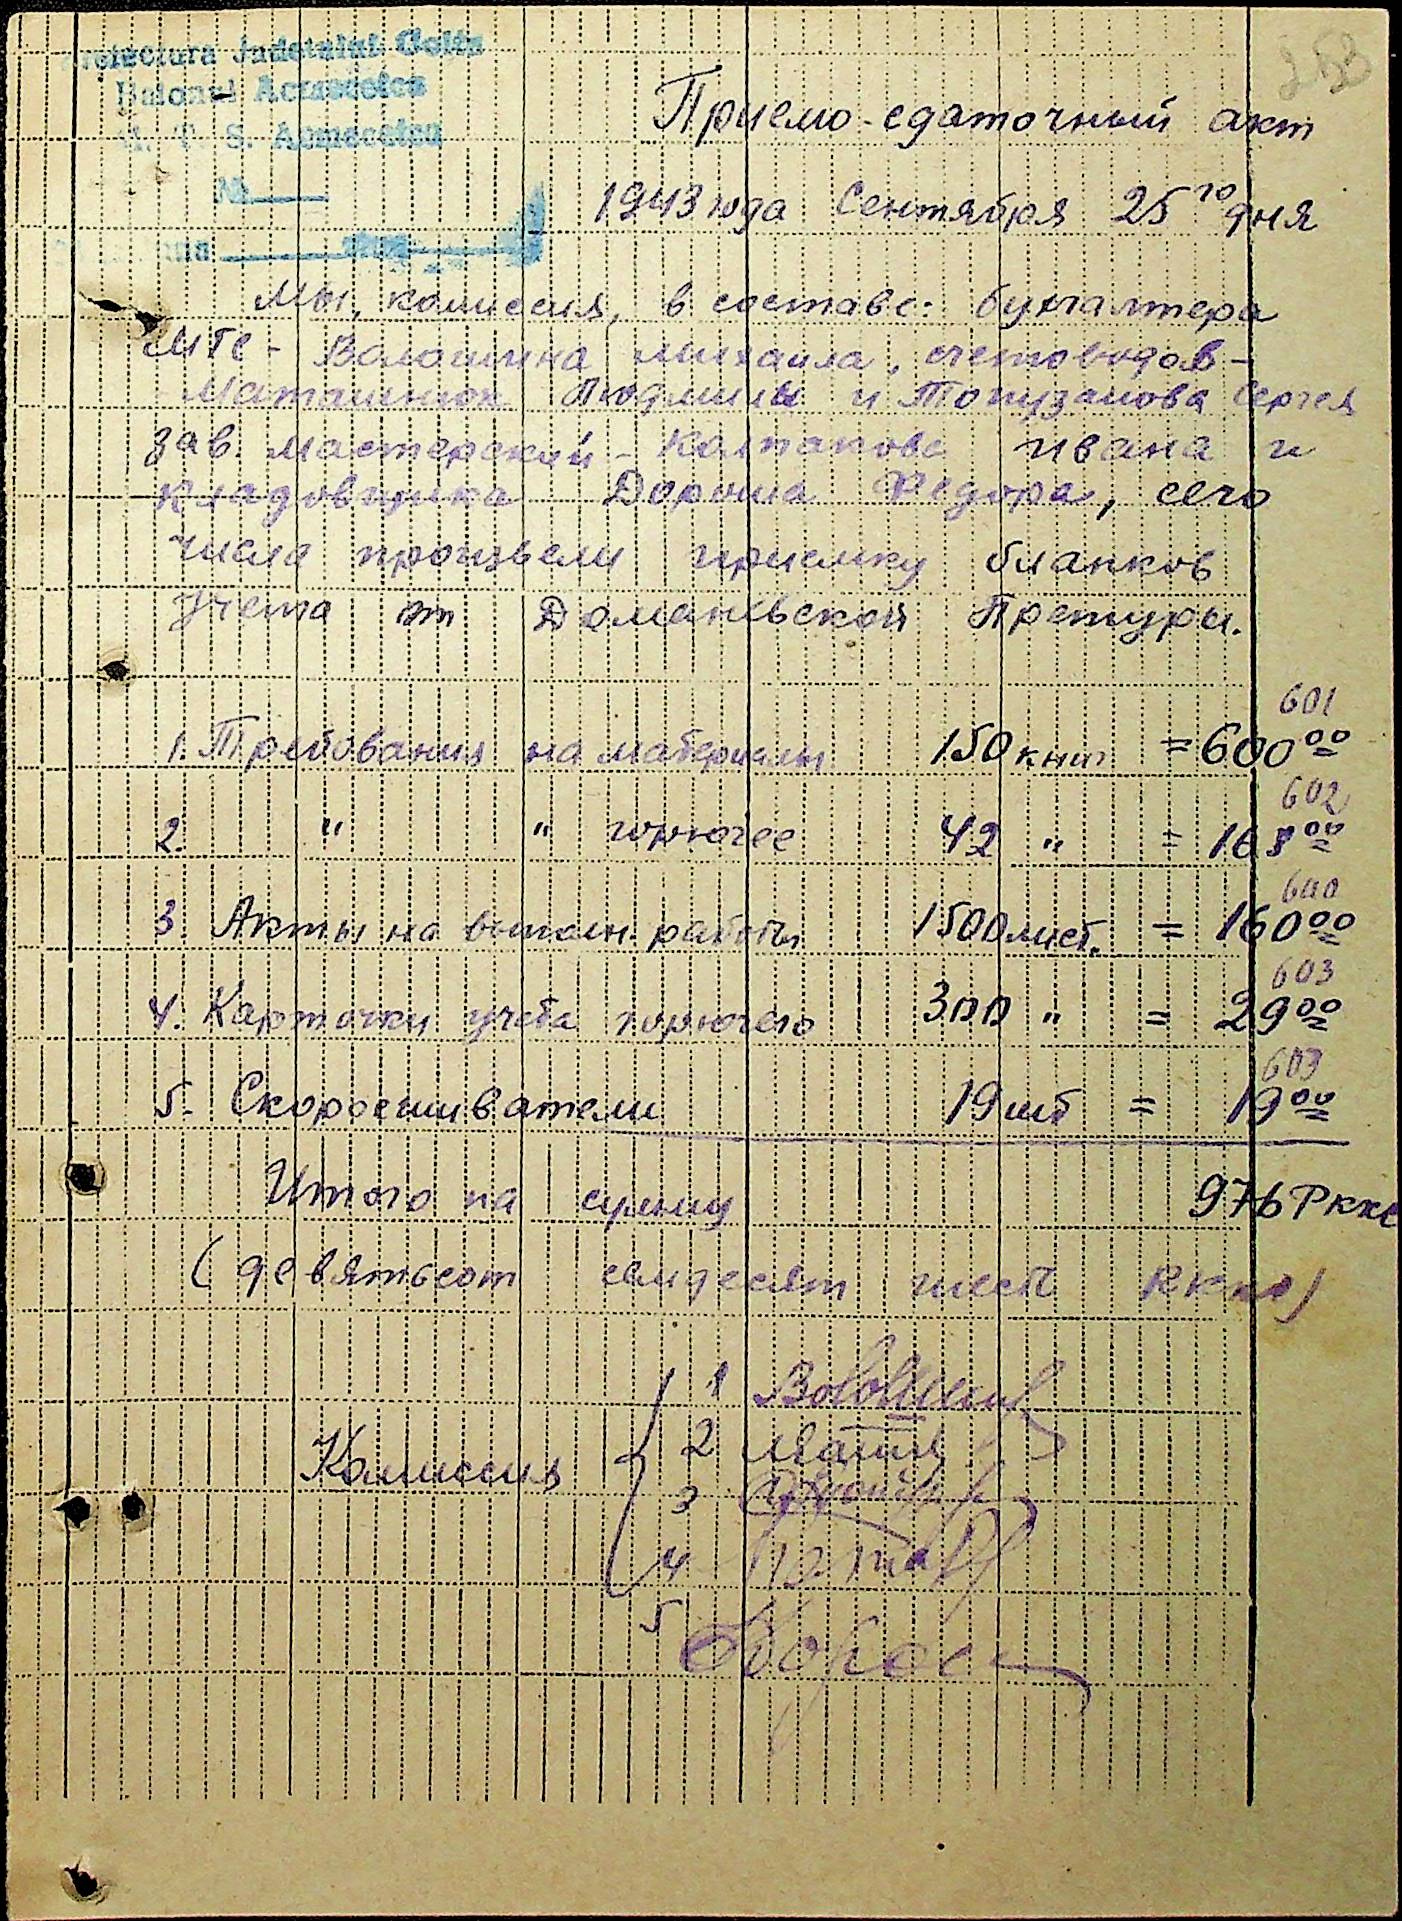 253
Prefectura Judetului Golta
Raionul Acmecetca
M. T. S. Acmecetca
№
Приемо-сдаточный акт
1943 года Сентября 25го дня
Мы, комиссия, в составе: бухгалтера
МТС - Волошина Михаила, счетоводов -
Маташнюк Людмилы и Топузанова Сергея
зав. мастерский - Колпакова Ивана и
кладовщика Дороша Федора, сего
числа произвели приемку бланков
учета от Доманевской Претуры.
601
1. Требования на материалы 150 книг = 600 00
602
2. " " горючее 42 " = 168 00
600
3. Акты на выполн. работы 1500 лист. = 160 00
603
4. Карточки учета горючего 300 " = 29 00
603
5. Скоросшиватели 19 шт = 19 00
Итого на сумму 976 Рккс
(девятьсот семдесят шесть Rккс)
1 Волошин
Комиссия
2
3
4
5